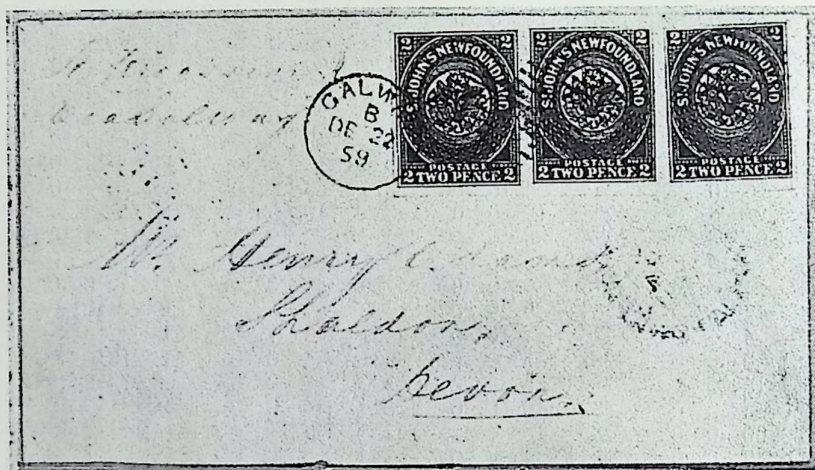 2 2
ST. JOHN'S NEWFOUNDLAND
POSTAGE
2 TWO PENCE 2
2 2
ST. JOHN'S NEWFOUNDLAND
POSTAGE
2 TWO PENCE 2
2 2
ST. JOHN'S NEWFOUNDLAND
POSTAGE
2 TWO PENCE 2
GALW
B
DE 22
59
Henry
Shaldon,
Devon.